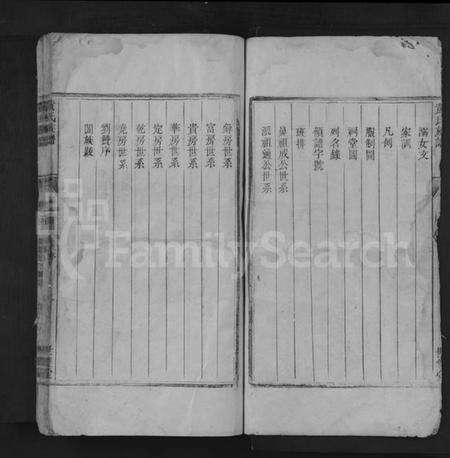 溺女文
家訓
凡例
服制圖
祠堂圖
祠名錄
領譜字號
班排
鼻祖成公世系
派祖通公世系
房世系
富房世系
貴房世系
華房世系
定房世系
乾房世系
堯房世系
劉贊序
闔族跋
FamilySearch